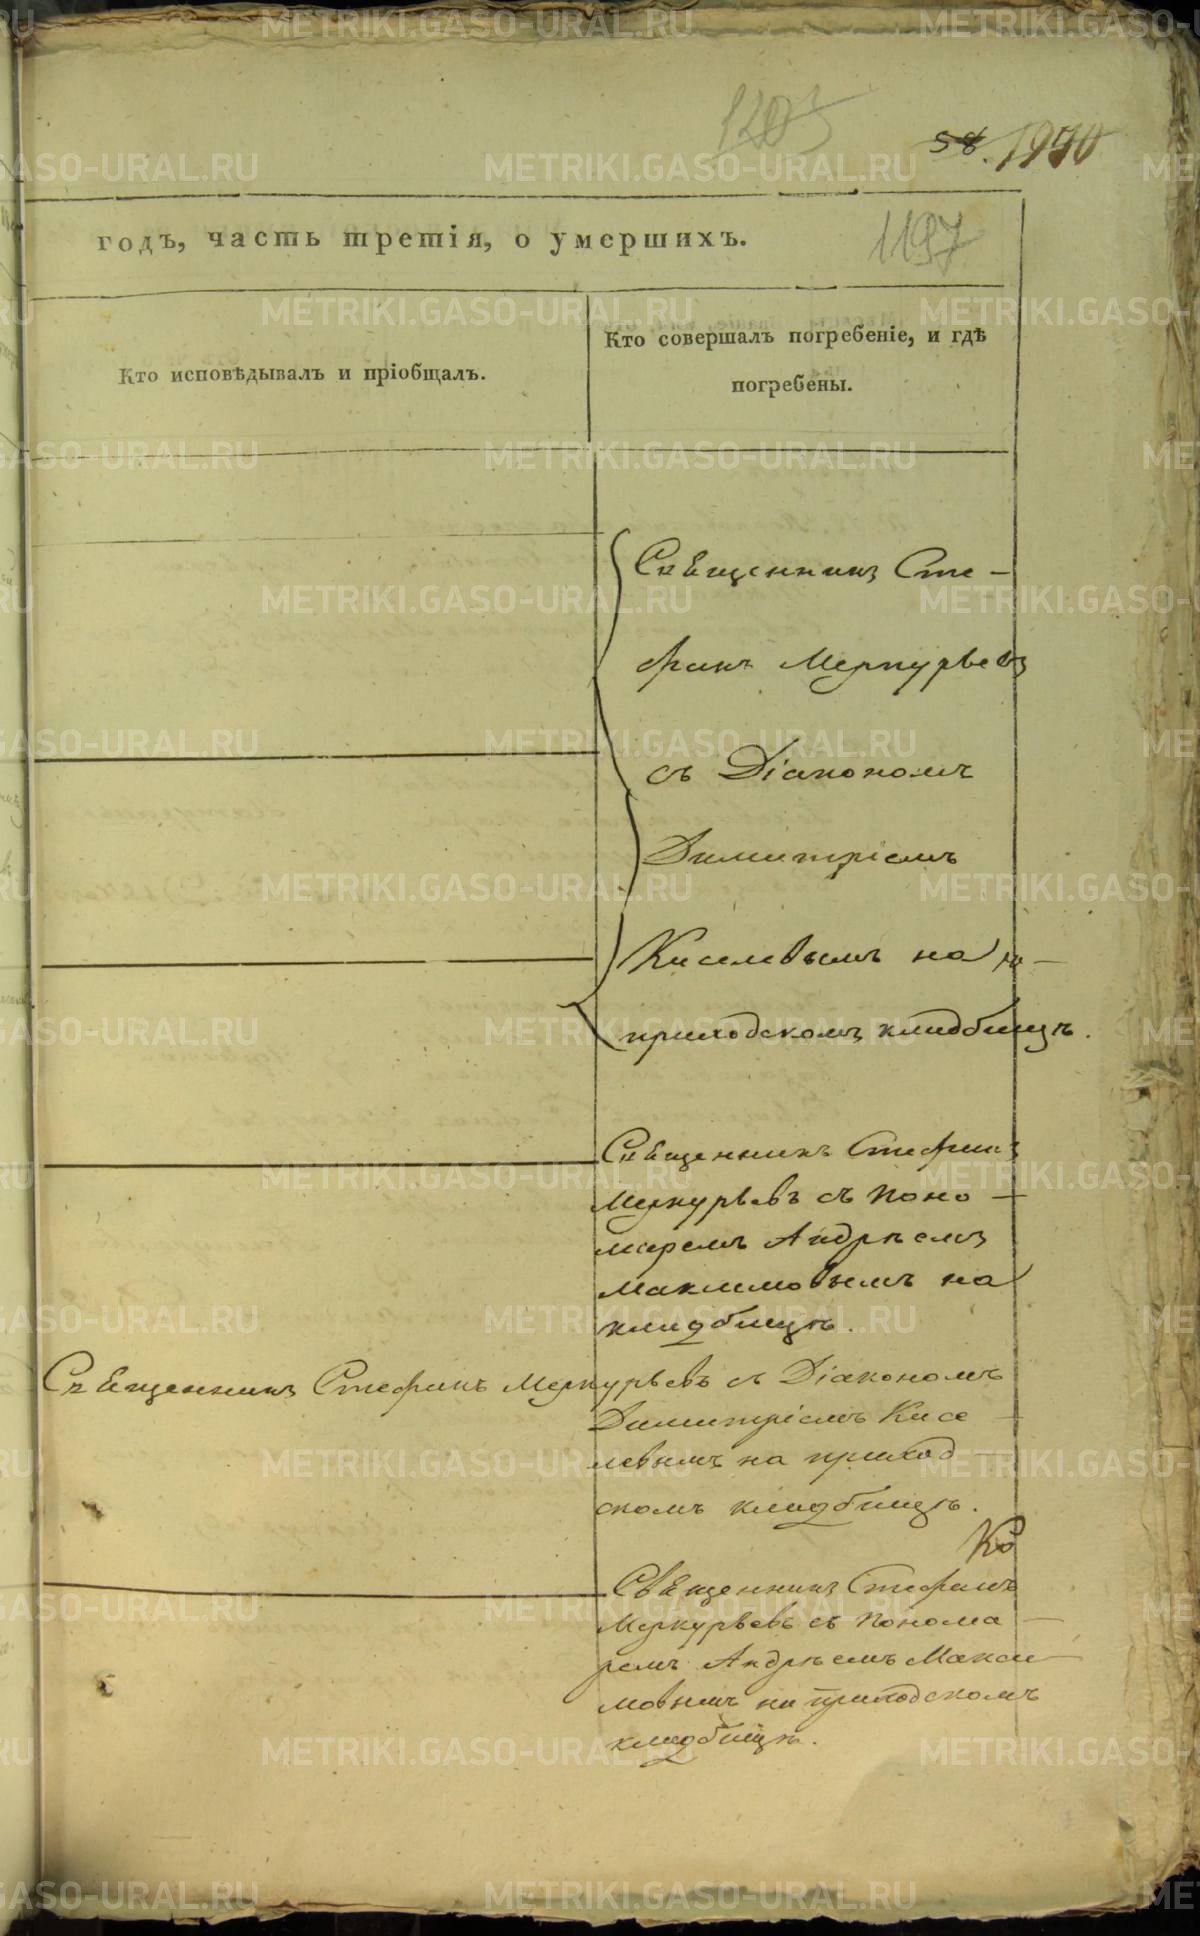 1205
58. 1970
годъ, часть третія, о умершихъ.
1197
Кто исповѣдывалъ и пріобщалъ.
Кто совершалъ погребеніе, и гдѣ
погребены.
Священникъ Сте-
фанъ Меркурьевъ
съ Діакономъ
Димитріемъ
Киселевымъ на
приходскомъ кладбищѣ.
Священникъ Стефанъ
Меркурьевъ съ Поно-
маремъ Андрѣемъ
Максимовымъ на
кладбищѣ.
Священникъ Стефанъ Меркурьевъ съ Діакономъ
Димитріемъ Кисе-
левымъ на приход-
скомъ кладбищѣ.
Священникъ Стефанъ
Меркурьевъ съ Понома-
ремъ Андрѣемъ Макси-
мовымъ на приходскомъ
кладбищѣ.
METRIKI.GASO-URAL.RU